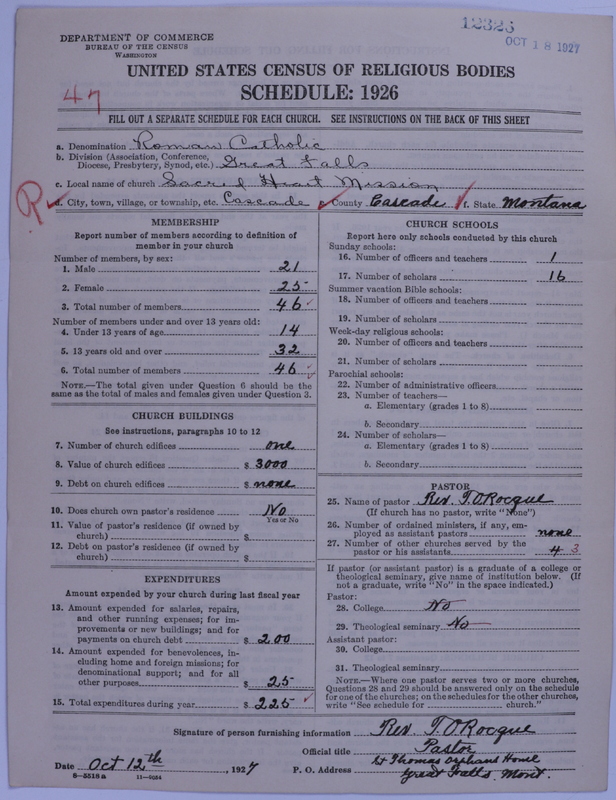 12325
OCT 18 1927
DEPARTMENT OF COMMERCE
BUREAU OF THE CENSUS
WASHINGTON
UNITED STATES CENSUS OF RELIGIOUS BODIES
SCHEDULE: 1926
47
FILL OUT A SEPARATE SCHEDULE FOR EACH CHURCH. SEE INSTRUCTIONS ON THE BACK OF THIS SHEET
a. Denomination Roman Catholic
b. Division (Association, Conference, Diocese, Presbytery, Synod, etc.) Great Falls
c. Local name of church Sacred Heart Mission
R
d. City, town, village, or township, etc. Cascade e. County Cascade f. State Montana
MEMBERSHIP
Report number of members according to definition of member in your church
Number of members, by sex:
1. Male 21
2. Female 25
3. Total number of members 46
Number of members under and over 13 years old:
4. Under 13 years of age 14
5. 13 years old and over 32
6. Total number of members 46
NOTE.—The total given under Question 6 should be the same as the total of males and females given under Question 3.
CHURCH BUILDINGS
See instructions, paragraphs 10 to 12
7. Number of church edifices one
8. Value of church edifices $ 3000
9. Debt on church edifices $ none
10. Does church own pastor's residence No
Yes or No
11. Value of pastor's residence (if owned by church) $
12. Debt on pastor's residence (if owned by church) $
EXPENDITURES
Amount expended by your church during last fiscal year
13. Amount expended for salaries, repairs, and other running expenses; for improvements or new buildings; and for payments on church debt $ 200
14. Amount expended for benevolences, including home and foreign missions; for denominational support; and for all other purposes $ 25
15. Total expenditures during year $ 225
CHURCH SCHOOLS
Report here only schools conducted by this church
Sunday schools:
16. Number of officers and teachers 1
17. Number of scholars 16
Summer vacation Bible schools:
18. Number of officers and teachers
19. Number of scholars
Week-day religious schools:
20. Number of officers and teachers
21. Number of scholars
Parochial schools:
22. Number of administrative officers
23. Number of teachers—
a. Elementary (grades 1 to 8)
b. Secondary
24. Number of scholars—
a. Elementary (grades 1 to 8)
b. Secondary
PASTOR
25. Name of pastor Rev. T. O Rocque
(If church has no pastor, write "None")
26. Number of ordained ministers, if any, employed as assistant pastors none
27. Number of other churches served by the pastor or his assistants 4 3
If pastor (or assistant pastor) is a graduate of a college or theological seminary, give name of institution below. (If not a graduate, write "No" in the space indicated.)
Pastor:
28. College No
29. Theological seminary No
Assistant pastor:
30. College
31. Theological seminary
NOTE.—Where one pastor serves two or more churches, Questions 28 and 29 should be answered only on the schedule for one of the churches; on the schedules for the other churches, write "See schedule for church."
Signature of person furnishing information Rev. T. O Rocque
Official title Pastor
Date Oct 12th, 1927 P. O. Address St Thomas Orphans Home
Great Falls, Mont.
8—5518 a 11—9054